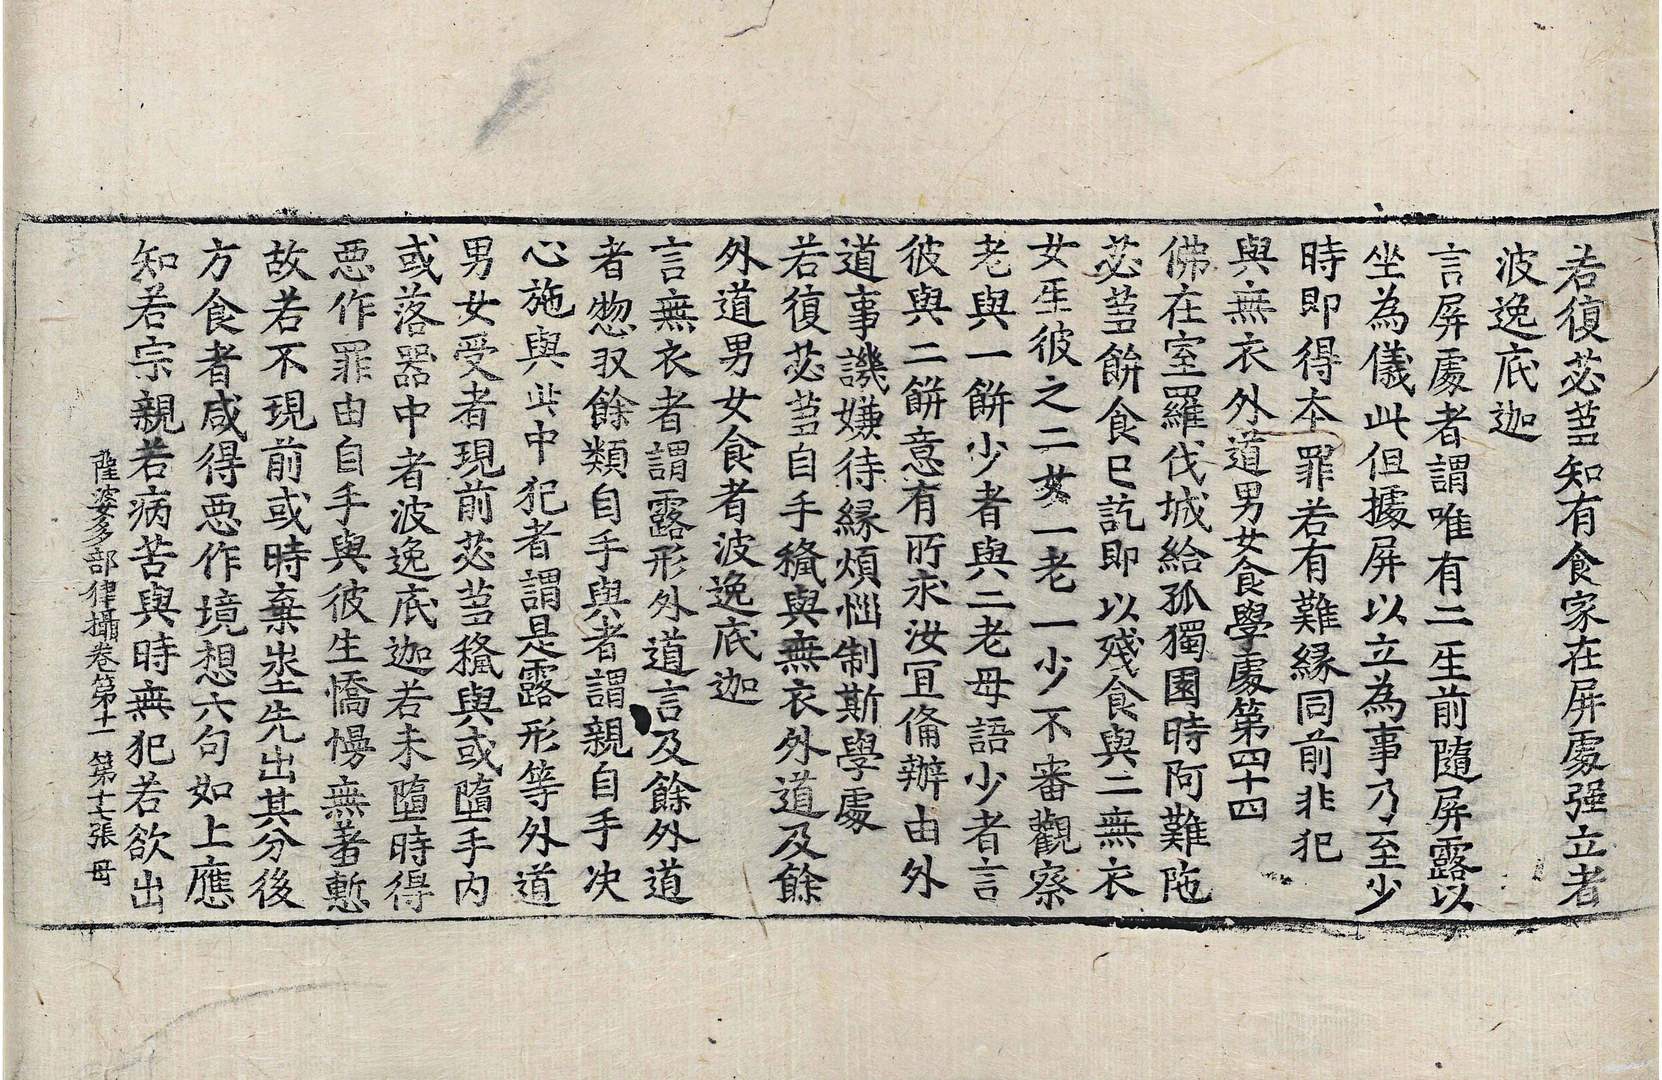 若復苾蒭知有食家在屛處强立者
波逸底迦
言屛處者謂唯有二生前隨屛露以
坐為儀此但據屛以立為事乃至少
時即得本罪若有難縁同前非犯
與無衣外道男女食學處第四十四
佛在室羅伐城給孤獨園時阿難陁
苾蒭餠食已訖即以殘食與二無衣
女生彼之二女一老一少不審觀察
老與一餠少者與二老母語少者言
彼與二餠意有所求汝冝俻辦由外
道事譏嫌待縁煩惱制斯學處
若復苾蒭自手授與無衣外道及餘
外道男女食者波逸底迦
言無衣者謂露形外道言及餘外道
者惣収餘類自手與者謂親自手决
心施與此中犯者謂是露形等外道
男女受者現前苾蒭授與或墮手内
或落器中者波逸底迦若未墮時得
惡作罪由自手與彼生憍慢無著慙
故若不現前或時棄坐先出其分後
方食者咸得惡作境想六句如上應
知若宗親若病苦與時無犯若欲出
薩婆多部律攝卷第十一 第十七張 母